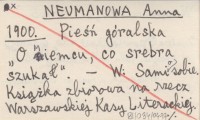 NEUMANOWA Anna
1900. Pieśń góralska
"O Niemcu, co srebra
szukał". – W: Sami sobie.
Książka zbiorowa na rzecz
Warszawskiej Kasy Literackiej